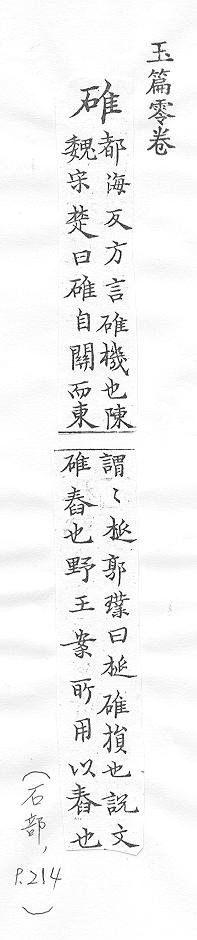 玉篇零卷
碓
都海反方言碓機也陳
魏宋楚曰碓自關而東
謂〻梴郭璞曰梴碓損也説文
碓舂也野王案所用以舂也
(石部,
P.214)